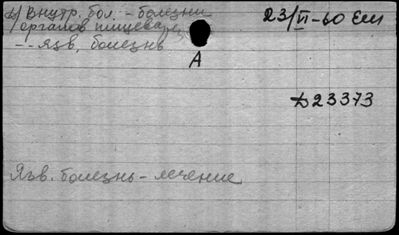 а) Внутр. бол. – болезни
органов пищевар.
– – язв. болезнь
23/II–60 Еш
А
Д23373
Язв. болезнь – лечение